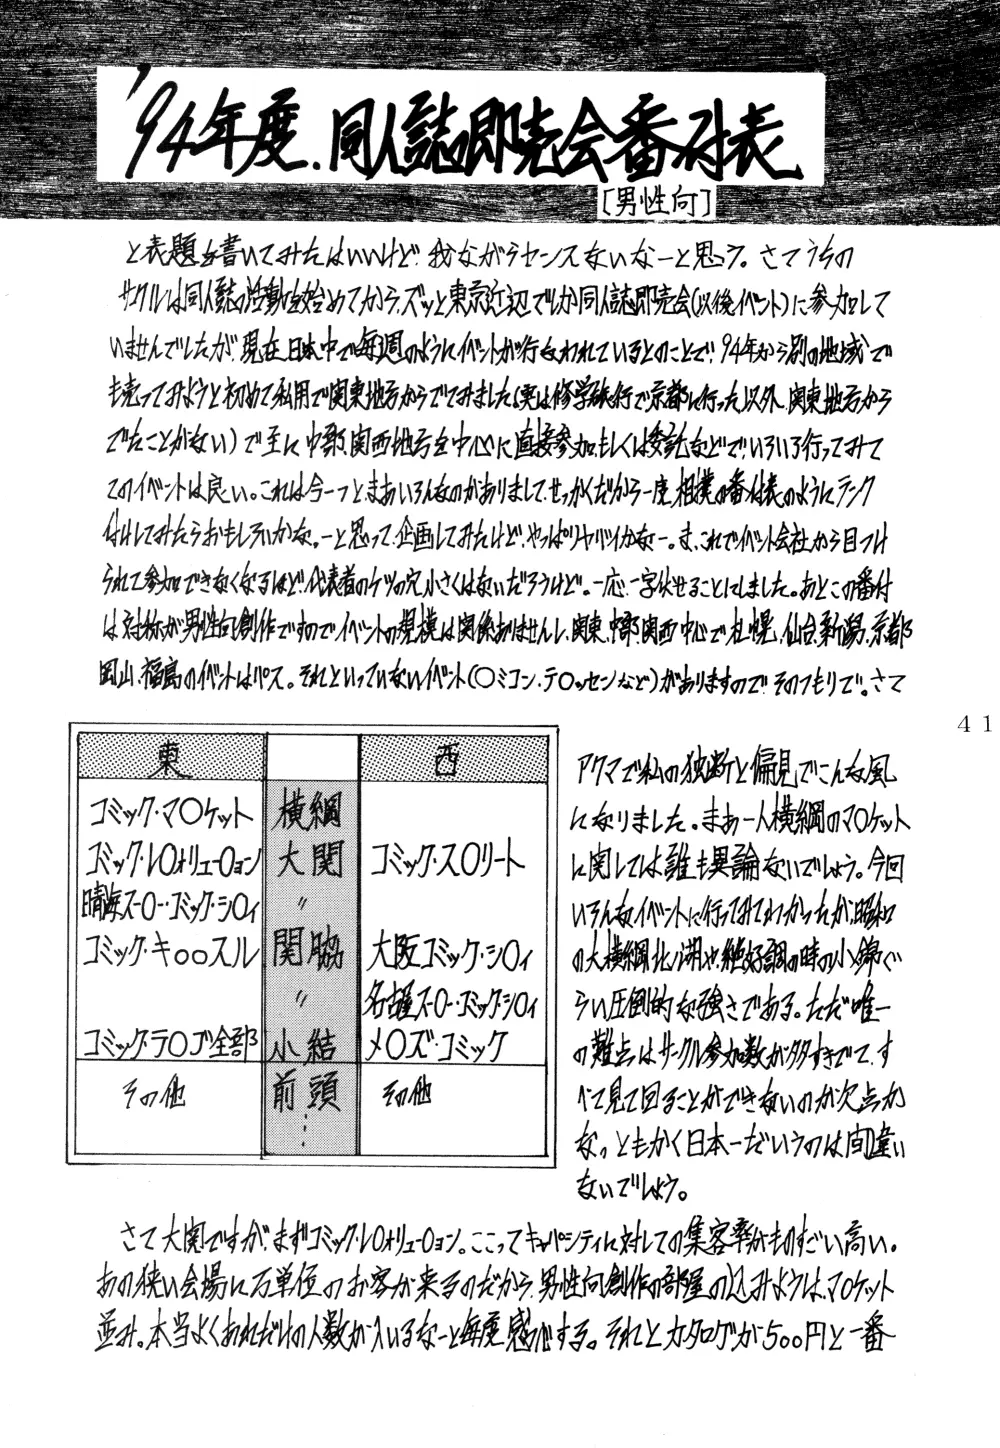 '94年度.同人誌即売会番付表
[男性向]
と表題を書いてみたはいいけど我ながらセンスないなーと思う。さてうちの
サークルは同人誌の活動を始めてからズッと東京近辺でしか同人誌即売会(以後イベント)に参加して
いませんでしたが、現在、日本中で毎週のようにイベントが行なわれているとのことで'94年から別の地域で
も売ってみようと初めて私用で関東地方からでてみました(実は修学旅行で京都に行った以外、関東地方から
でたことがない)で主に中部、関西地方を中心に直接参加、もしくは委託などでいろいろ行ってみて
このイベントは良い。これは今一つとまあいろんなのがありまして、せっかくだから一度、相撲の番付表のようにランク
付けしてみたらおもしろいかな。ーと思って、企画してみたけど、やっぱりヤバイかなー。ま、これでイベント会社から目つけ
られて参加できなくなるほど、代表者のケツの穴小さくはないだろうけど。一応、一字伏せることにしました。あとこの番付
は対称が男性向創作ですのでイベントの規模は関係ありませんし、関東、中部、関西中心で札幌、仙台、新潟、京都
岡山、福島のイベントはパス。それといっていないイベント(〇ミコン、テ〇ッセンなど)がありますので、そのつもりで。さて
41
東
西
コミック・マ〇ケット 横綱
コミック・レ〇ォリュー〇ョン 大関 コミック・ス〇リート
晴海スー〇ー・コミック・シ〇ィ 〃
コミック・キ〇〇スル 関脇 大阪コミック・シ〇ィ
〃 名古屋スー〇ー・コミック・シ〇ィ
コミック・テ〇ブ全部 小結 メ〇ズ・コミック
その他 前頭 その他
アクマで私の独断と偏見でこんな風
になりました。まあ一人横綱のマ〇ケット
に関しては誰も異論ないでしょう。今回
いろんなイベントに行ってみてわかったが、昭和
の大横綱北ノ湖や、絶好調の時の小錦ぐ
らい圧倒的な強さである。ただ唯一
の難点はサークル参加数が多すぎて、す
べて見て回ることができないのが欠点か
な。ともかく日本一だいうのは間違い
ないでしょう。
さて大関ですが、まずコミック・レ〇ォリュー〇ョン。ここってキャパシティに対しての集客率がものすごい高い。
あの狭い会場に万単位のお客が来るのだから、男性向創作の部屋の込みようは、マ〇ケット
並み。本当よくあれだけの人数が入いるなーと毎度感心する。それとカタログが500円と一番